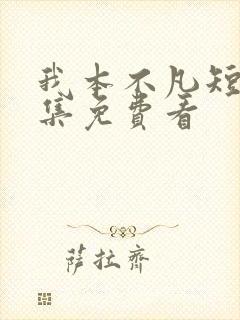 我本不凡短
集免费看
萨拉齐